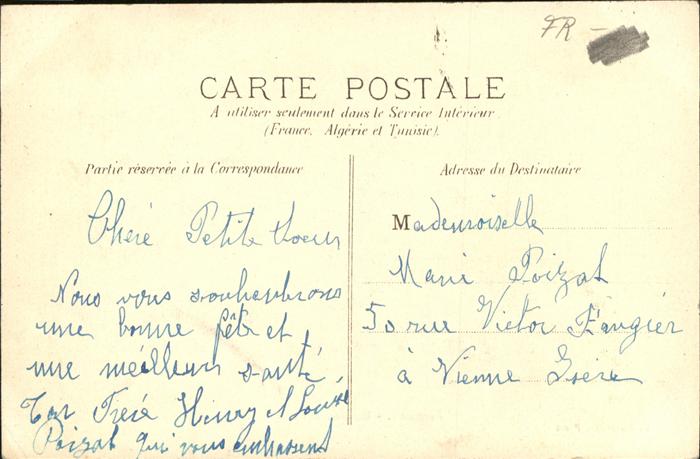 FR -
CARTE POSTALE
A utiliser seulement dans le Service Intérieur
(France, Algérie et Tunisie).
Partie réservée à la Correspondance
Adresse du Destinataire
Cheré Petite Soeur
Nous vous souhentrons
une bonne fête et
une meilleur santé
Ton Freré Henry et Louise
Poizat qui vous embrassent
Mademoiselle
Marie Poizat
50 rue Victor Faugier
à Vienne Isère